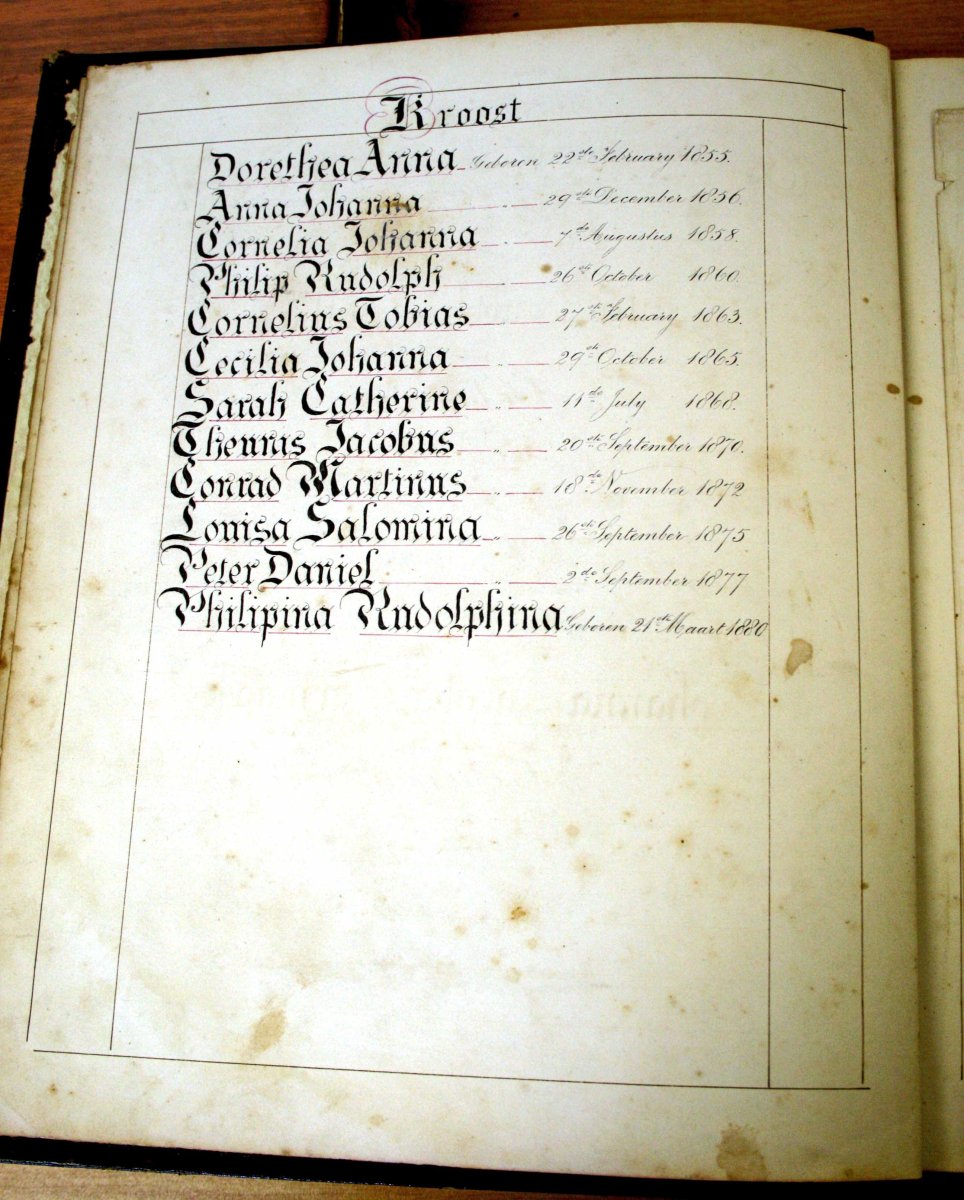 Kroost
Dorethea Anna Geboren 22ste February 1855.
Anna Johanna „ 29ste December 1856.
Cornelia Johanna „ 7de Augustus 1858.
Philip Rudolph „ 26ste October 1860.
Cornelius Tobias „ 27ste February 1863.
Cecilia Johanna „ 29ste October 1865.
Sarah Catherine „ 11de July 1868.
Theunis Jacobus „ 20ste September 1870.
Conrad Martinus „ 18de November 1872
Louisa Salomina „ 26ste September 1875
Peter Daniel „ 2de September 1877
Philipina Rudolphina Geboren 21ste Maart 1880